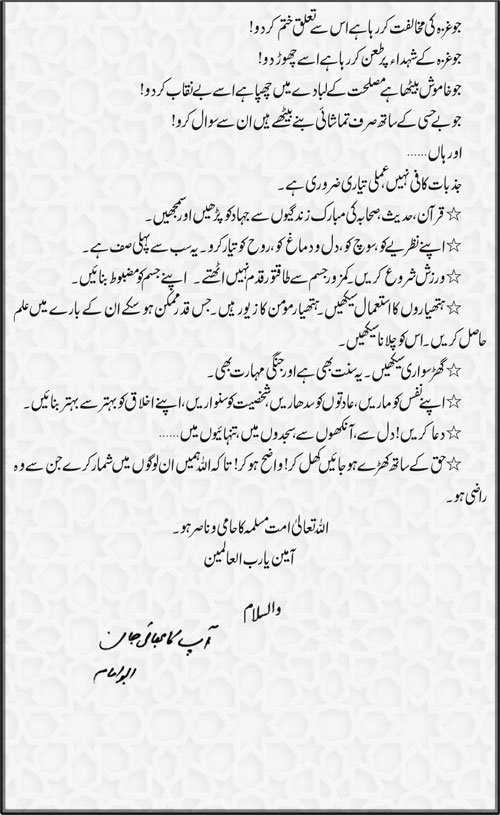 جو غزہ کی مخالفت کر رہا ہے اس سے تعلق ختم کر دو!
جو غزہ کے شہداء پر طعن کر رہا ہے اسے چھوڑ دو!
جو خاموش بیٹھا ہے مصلحت کے لبادے میں چھپا ہے اسے بے نقاب کر دو!
جو بے حسی کے ساتھ صرف تماشائی بنے بیٹھے ہیں ان سے سوال کرو!
اور ہاں......
جذبات کافی نہیں، عملی تیاری ضروری ہے۔
☆ قرآن، حدیث، صحابہ کی مبارک زندگیوں سے جہاد کو پڑھیں اور سمجھیں۔
☆ اپنے نظریے کو، سوچ کو، دل و دماغ کو، روح کو تیار کرو۔ یہ سب سے پہلی صف ہے۔
☆ ورزش شروع کریں۔ کمزور جسم سے طاقتور قدم نہیں اٹھتے۔ اپنے جسم کو مضبوط بنائیں۔
☆ ہتھیاروں کا استعمال سیکھیں۔ ہتھیار مومن کا زیور ہیں۔ جس قدر ممکن ہو سکے ان کے بارے میں علم
حاصل کریں۔ اس کو چلانا سیکھیں۔
☆ گھڑ سواری سیکھیں۔ یہ سنت بھی ہے اور جنگی مہارت بھی۔
☆ اپنے نفس کو ماریں، عادتوں کو سدھاریں، شخصیت کو سنواریں، اپنے اخلاق کو بہتر سے بہتر بنائیں۔
☆ دعا کریں! دل سے، آنکھوں سے، سجدوں میں، تنہائیوں میں......
☆ حق کے ساتھ کھڑے ہو جائیں کھل کر! واضح ہو کر! تاکہ اللہ ہمیں ان لوگوں میں شمار کرے جن سے وہ
راضی ہو۔
اللہ تعالیٰ امت مسلمہ کا حامی و ناصر ہو۔
آمین یا رب العالمین
والسلام
آپ کا بھائی جان